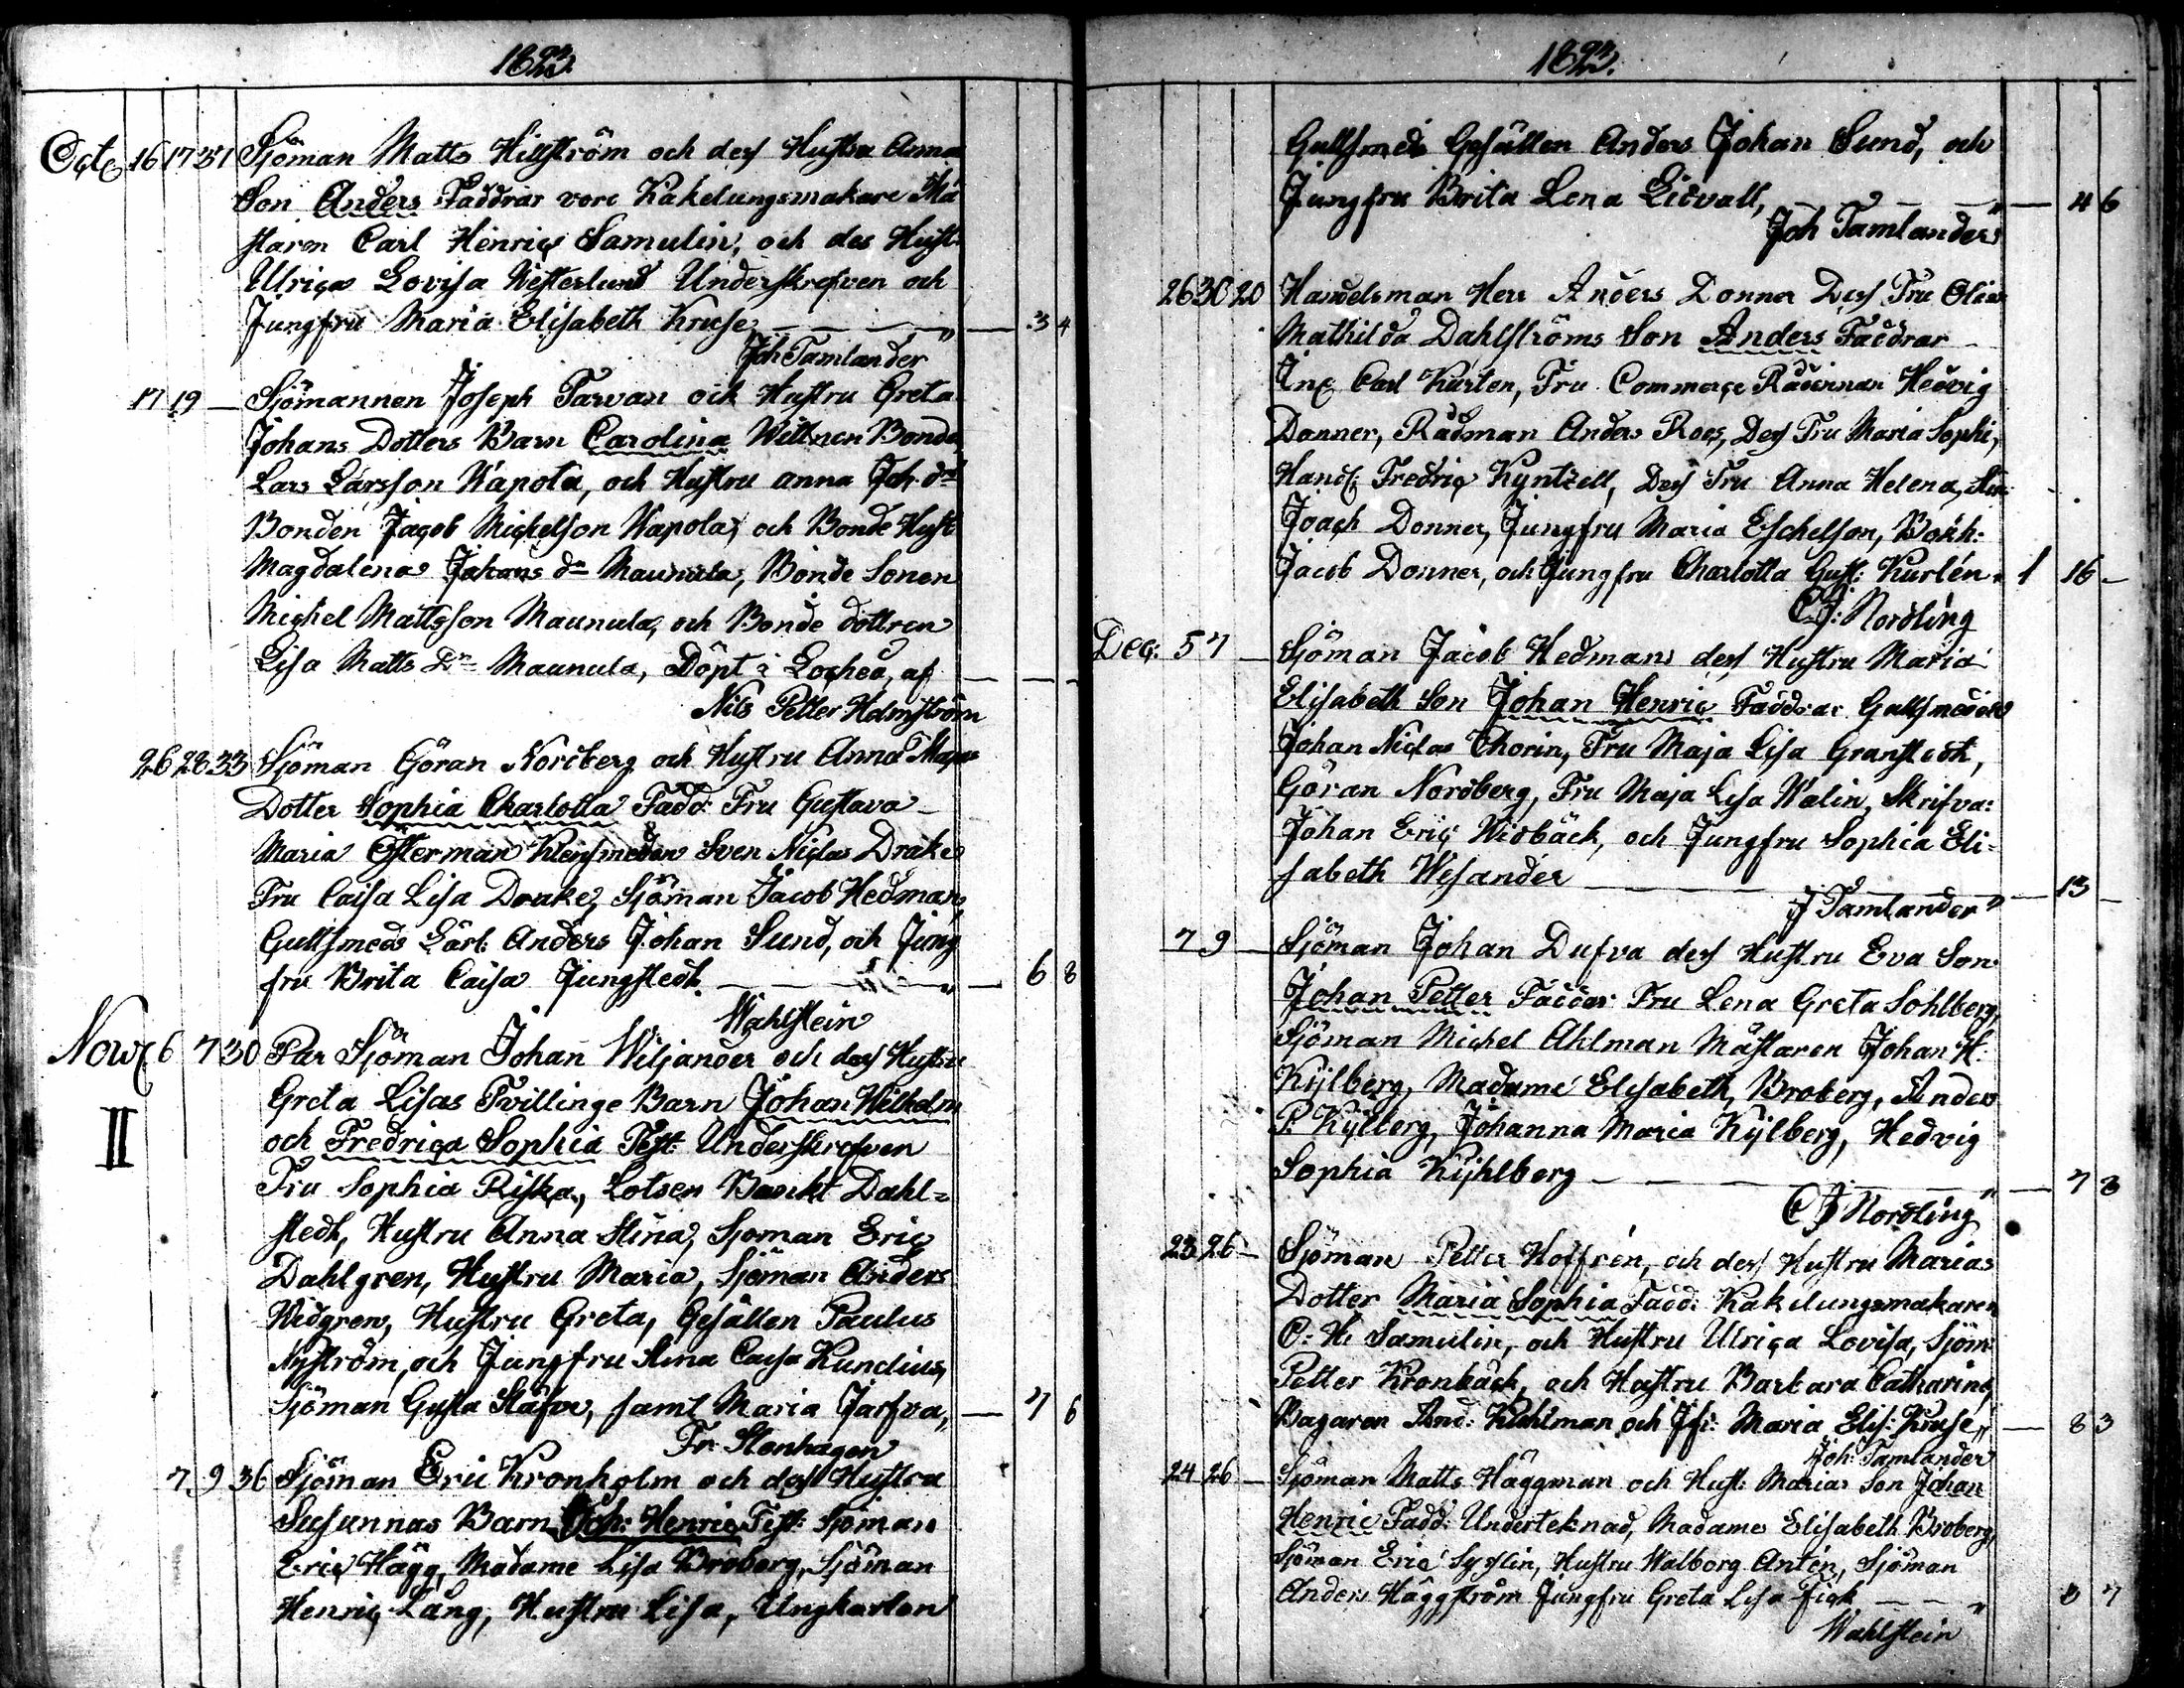 1823.
Octo 16 17 31 Sjöman Matts Hillström och dess Hustru Anna
Son Anders Faddrar vore Kakelungsmakare Mä
staren Carl Henric Samulin, och des Hust.
Ulrica Lovisa Westerlund Underskrefven och
Jungfru Maria Elisabeth Kruse — — — „ — 3 4
Joh Tamlander
17 19 — Sjömannen Joseph Tarvan och Hustru Greta
Johans Dotters Barn Carolina Wittnen Bonde
Lars Larsson Wapola, och Hustru anna Joh. dr
Bonden Jacob Michelson Wapola, och Bonde Hust
Magdalena Johans dr Maunula, Bonde Sonen
Michel Mattsson Maunula, och Bonde dottren
Lisa Matts Dr Maunula, Döpt i Locheå, af — —
Nils Petter Holmström
26 28 33 Sjöman Göran Nordberg och Hustru Anna Majas
Dotter Sophia Charlotta Fadd: Fru Gustava
Maria Österman Klensmeden Sven Niclas Drake
Fru Caisa Lisa Drake, Sjöman Jacob Hedman,
Gullsmeds Lärl: Anders Johan Sund, och Jung
fru Brita Caisa Jungstedt. — — „ — 6 8
Wahlstein
Nov. 6 7 30 Par Sjöman Johan Wiljander och dess Hustru
Greta Lisas Tvillinge Barn Johan Wilhelm
II och Fredrica Sophia Test: Underskrefven
Fru Sophia Riska, Lotsen Bankt Dahl=
stedt, Hustru Anna Stina, Sjoman Eric
Dahlgren, Hustru Maria, Sjöman Anders
Widgren, Hustru Greta, Gesällen Paulus
Nyström, och Jungfru Stina Caisa Kundius,
Sjöman Gusta Stäfve, samt Maria Jarfva, „ — 7 6
Fr: Stenhagen
7 9 36 Sjöman Eric Kronholm och dess Hustru
Susannas Barn Joh: Henric Test: Sjöman
Eric Hägg, Madame Lisa Broberg, Sjöman
Henric Lång, Hustru Lisa, Ungkarlen
1823.
Gullsmeds Gesällen Anders Johan Sund, och
Jungfru Brita Lena Lidvall, — — „ — 4 6
Joh Tamlander
26 30 20 Handelsman Herr Anders Donner Dess Fru Olica
Mathilda Dahlströms Son Anders Faddrar
Inc Carl Kurten, Fru Commerce Rådinnan Hedvig
Donner, Rådman Anders Roos, Dess Fru Maria Sophi,
Hand: Fredric Kyntzell, Dess Fru Anna Helena,
Joach Donner, Jungfru Maria Eschelson, Bokh:
Jacob Donner, och Jungfru Charlotta Gust: Kurtén „ 1 16 —
C J: Nordling
Dec: 5 7 — Sjöman Jacob Hedmans dess Hustru Maria
Elisabeth Son Johan Henric Faddrar Gullsmeden
Johan Niclas Thorin, Fru Maja Lisa Granstedt,
Göran Nordberg, Fru Maja Lisa Walin, Skrifva:
Johan Eric Widbäck, och Jungfru Sophia Eli=
sabeth Wesander — — — „ — 13 —
J Tamlander
7 9 — Sjöman Johan Dufva dess Hustru Eva Son
Johan Petter Faddar Fru Lena Greta Sohlberg,
Sjöman Michel Ahlman Mästaren Johan H:
Kijlberg, Madame Elisabeth Broberg, Anders
P. Kijlberg, Johanna Maria Kijlberg, Hedvig
Sophia Kijhlberg — — — „ — 7 8
C J Nordling
23 26 — Sjöman Petter Hoffrén, och dess Hustru Marias
Dotter Maria Sophia Fadd: Kakelungsmakaren
C: H: Samulin, och Hustru Ulrica Lovisa, Sjöm:
Petter Kronbäck, och Hustru Barbara Catharina,
Bagaren And: Kuhlman, och Jfr: Maria Elis: Kruse „ — 8 3
Joh: Tamlander
24 26 — Sjöman Matts Häggman och Hust: Marias Son Johan
Henric Fadd: Underteknad, Madame Elisabeth Broberg,
Sjöman Eric Syslin, Hustru Walborg Antin, Sjöman
Anders Häggström Jungfru Greta Lisa Fick — — „ 3 7
Wahlstein